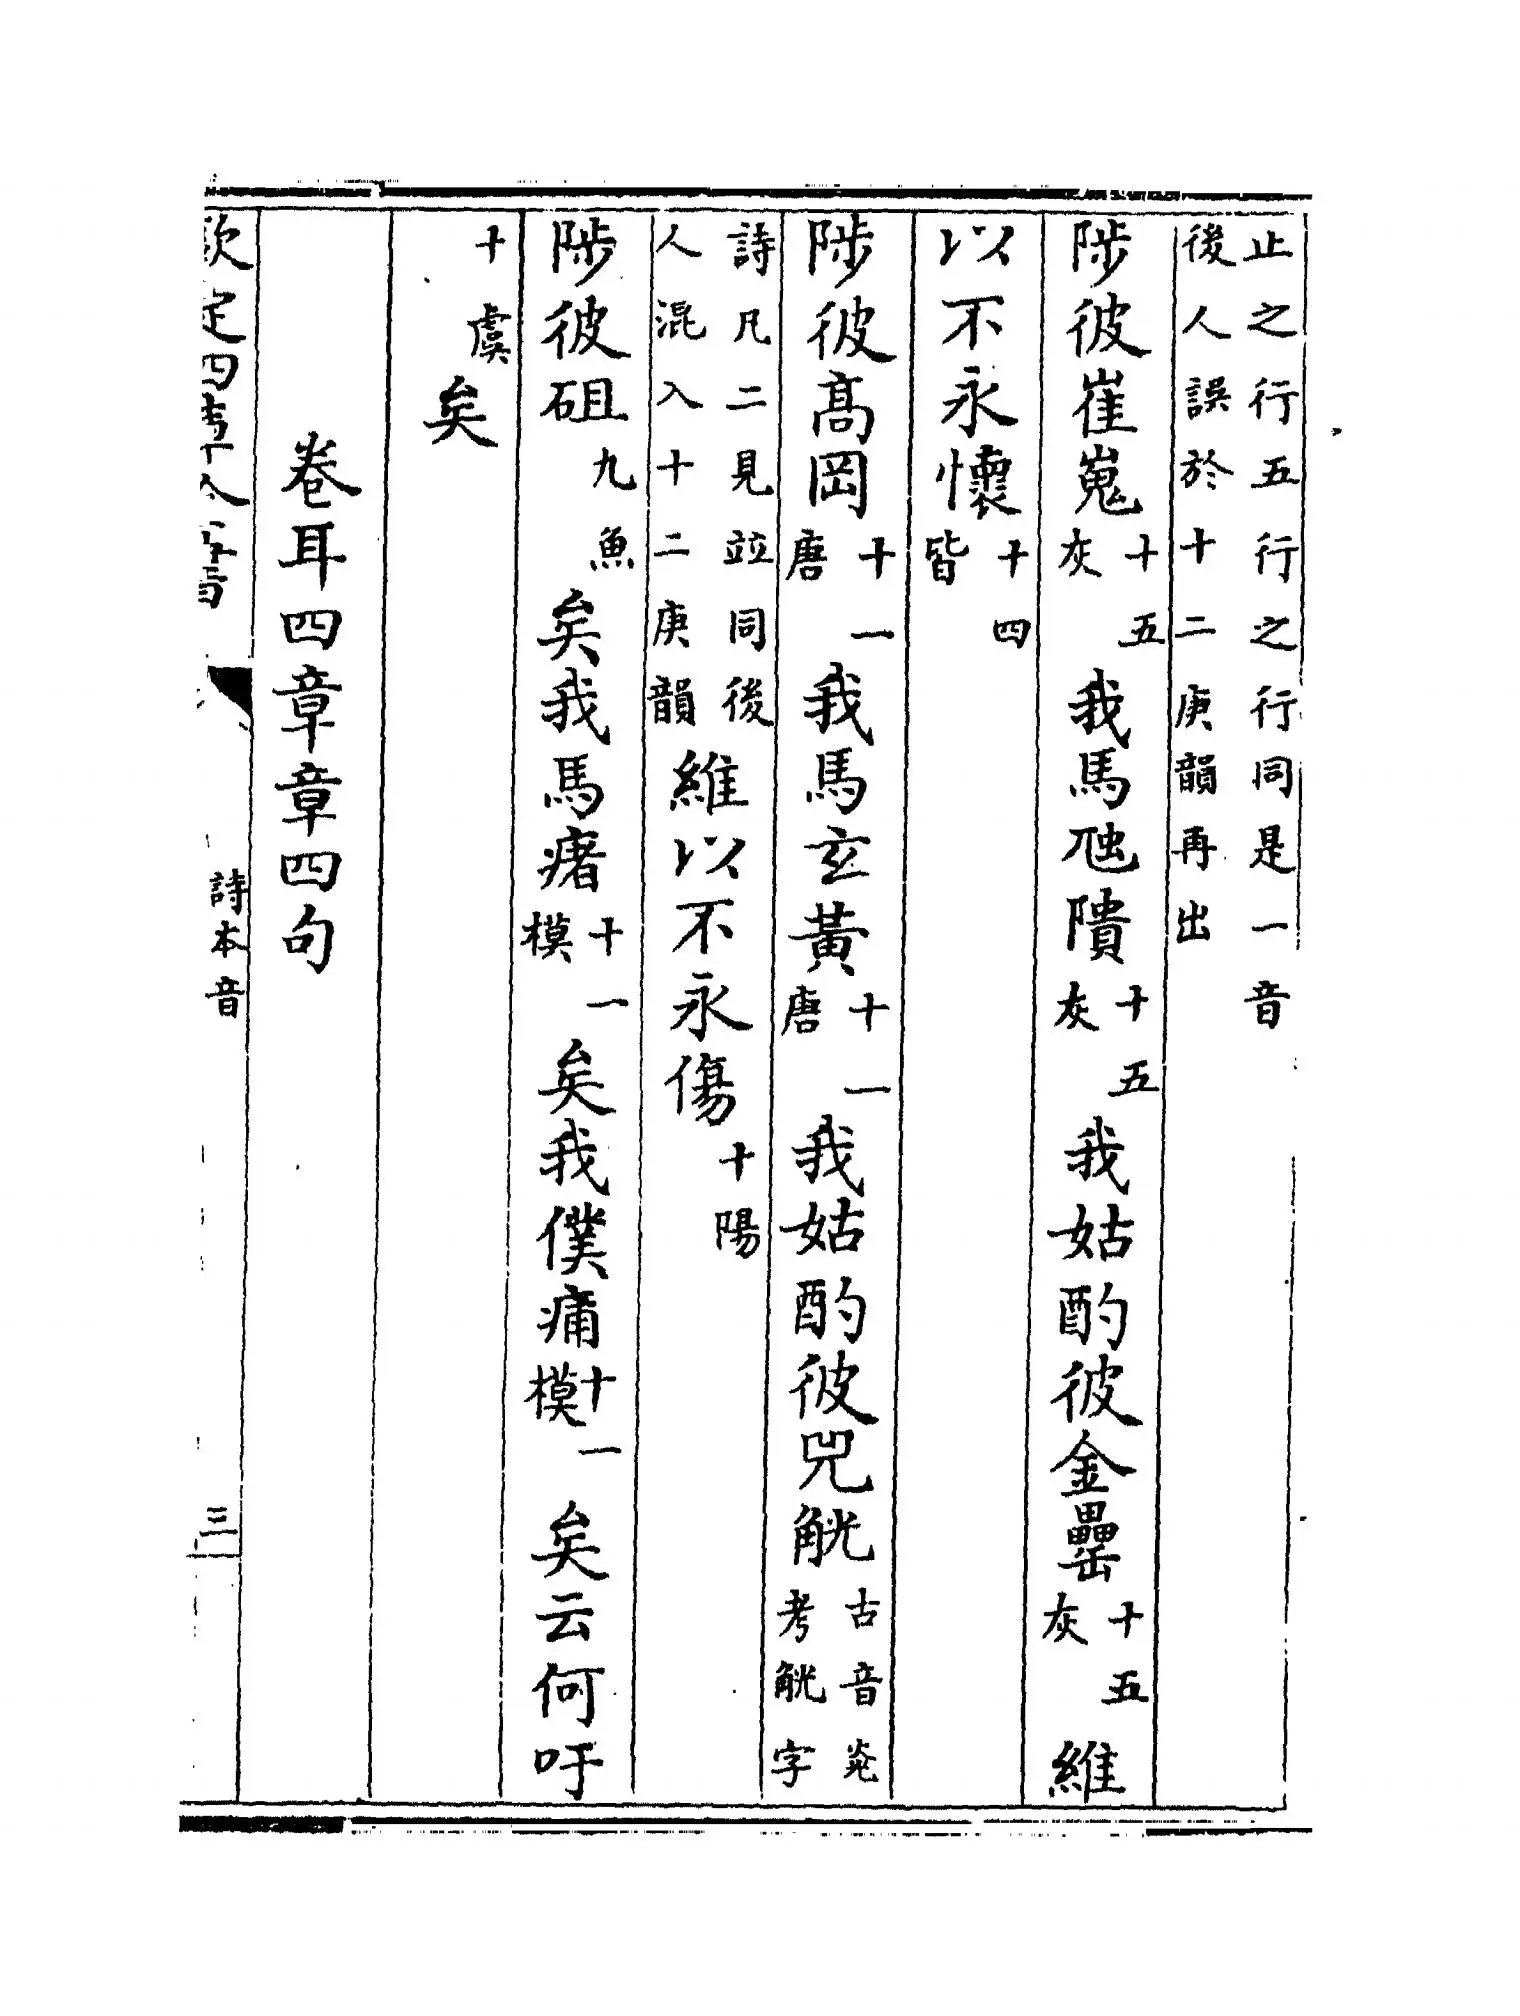 止之行五行之行同是一音
後人誤於十二庚韻再出
陟彼崔嵬十五灰我馬虺隤十五灰我姑酌彼金罍十五灰維
以不永懷十四皆
陟彼髙岡十一唐我馬玄黃十一唐我姑酌彼兕觥古音灮考觥字
詩凡二見竝同後人混入十二庚韻維以不永傷十陽
陟彼砠九魚矣我馬瘏十一模矣我僕痡十一模矣云何吁
十虞矣
卷耳四章章四句
欽定四庫全書
詩本音
三